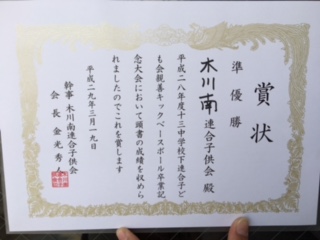 賞状
準優勝
木川南連合子供会 殿
平成二八年度十三中学校下連合子ど
も会親善キックベースボール卒業記
念大会において頭書の成績を収めら
れましたのでこれを賞します
平成二九年三月一九日
幹事 木川南連合子供会
会長 金光秀